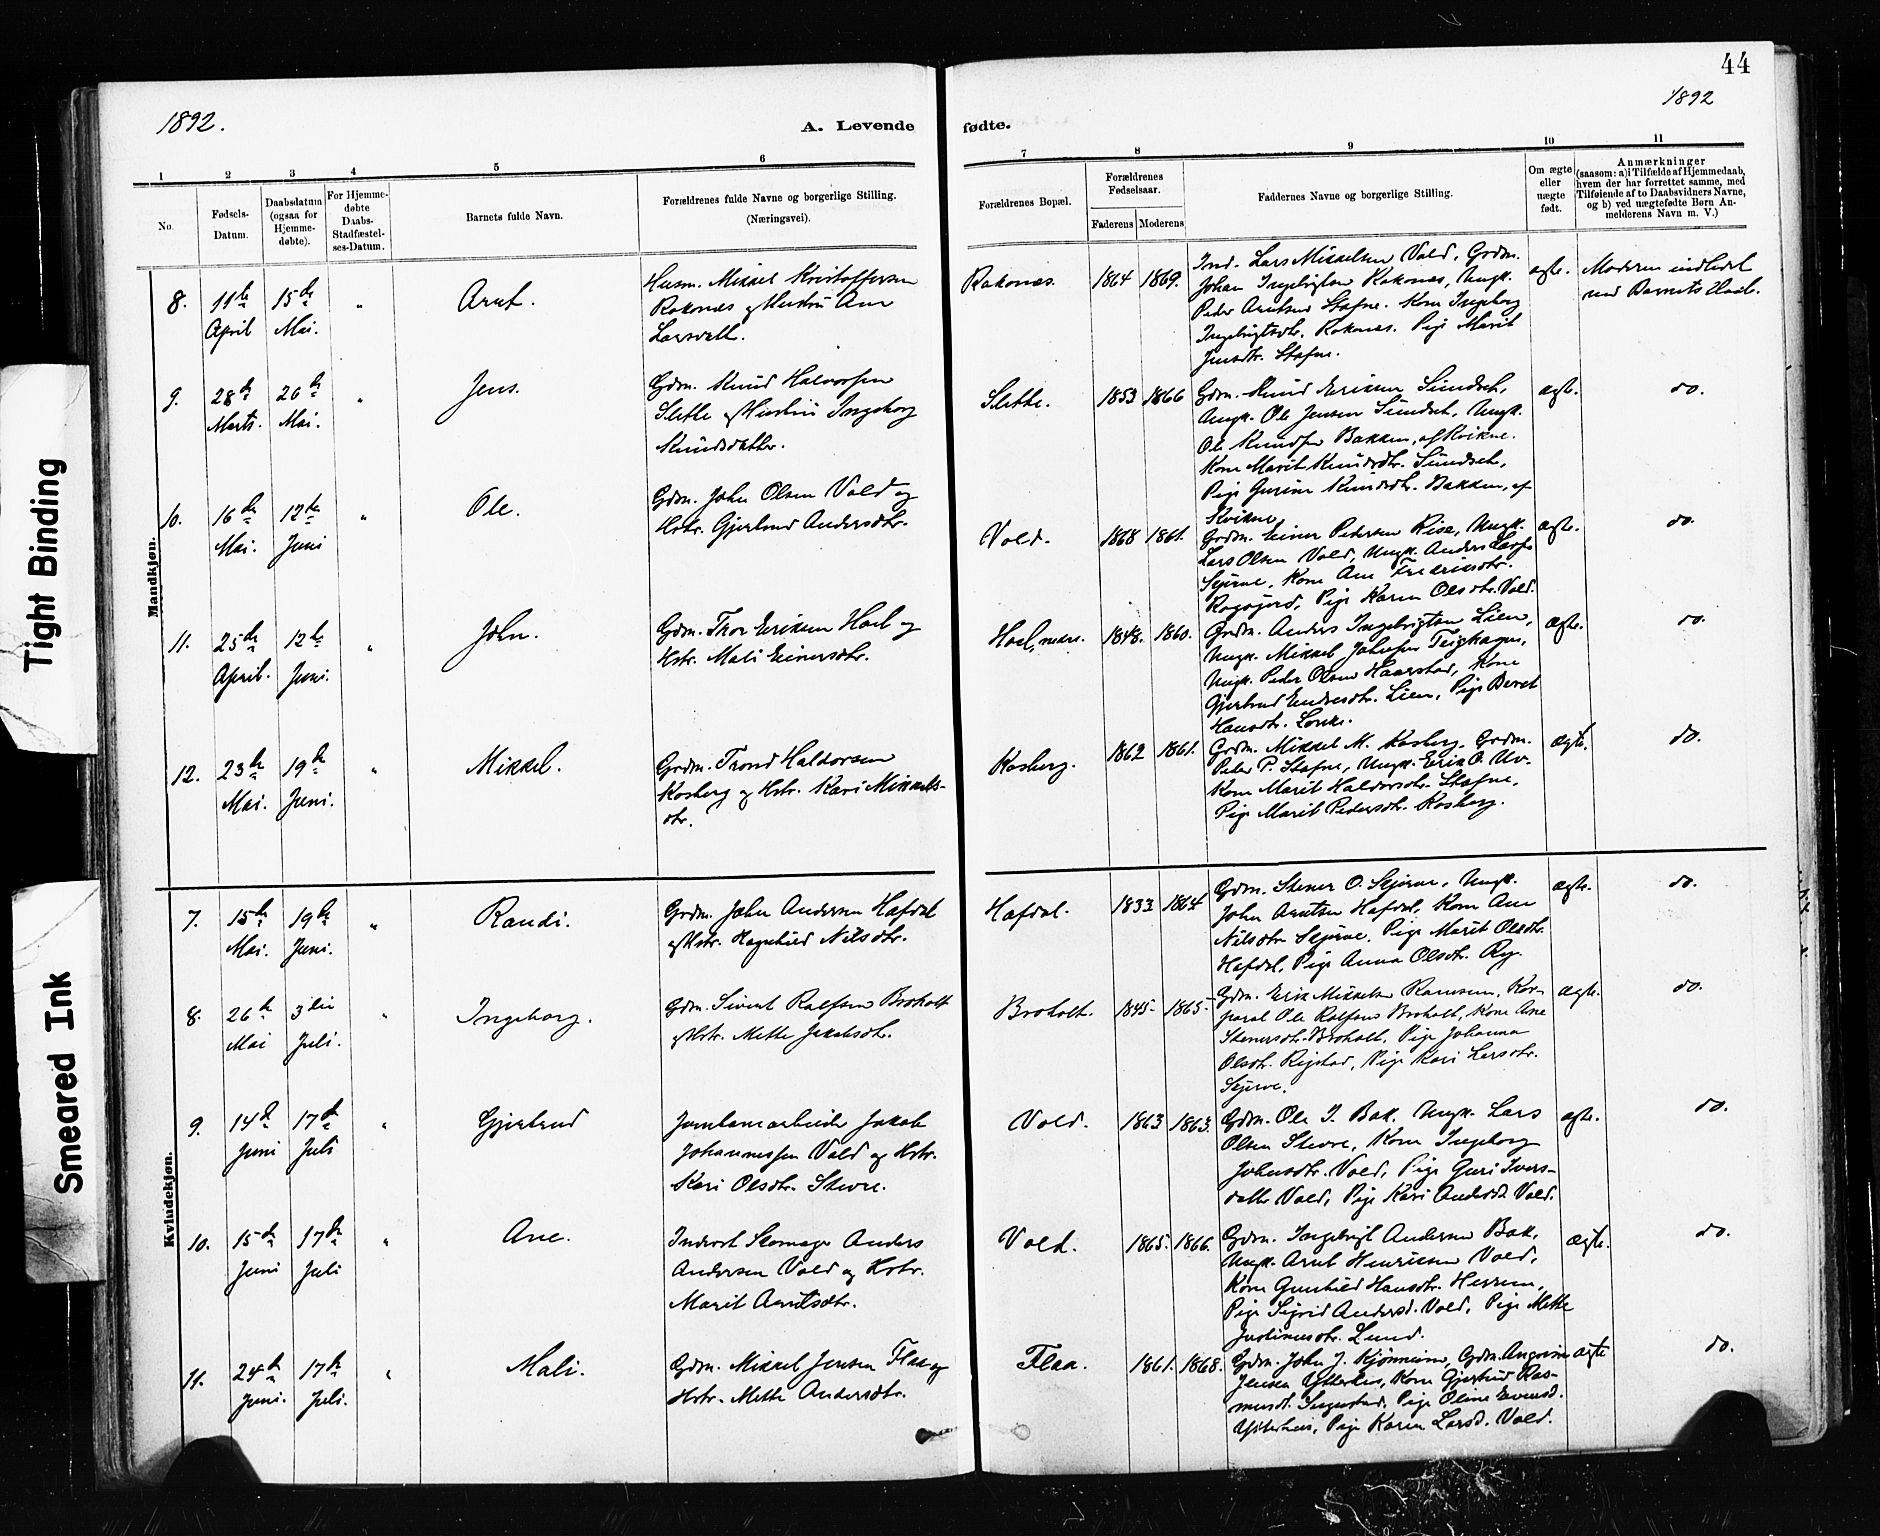 44
1892.
1892
A. Levende
fødte.
1 2 3 4 5 6
7 8 9 10 11
No.
Fødsels-
Datum.
Daabsdatum
(ogsaa for
Hjemme-
døbte).
For Hjemme-
døbte
Daabs-
Stadfæstel-
ses-Datum.
Barnets fulde Navn.
Forældrenes fulde Navne og borgerlige Stilling.
(Næringsvei).
Forældrenes Bopæl.
Forældrenes
Fødselsaar.
Faderens Moderens
Faddernes Navne og borgerlige Stilling.
Om ægte
eller
uægte
født.
Anmærkninger
(saasom: a) i Tilfælde af Hjemmedaab,
hvem der har forrettet samme, med
Tilføiende af to Daabsvidners Navne,
og b) ved uægtefødte Børn An-
melderens Navn m. V.)
Mandkjøn.
8.
11te
April
15de
Mai.
"
Arnt.
Husm. Mikkel Kristoffersen
Rokonæs og Hustru Ane
Larsdatt.
Rokonæs.
1864 1869.
Ind. Lars Mikkelsen Vold, Grdm.
Johan Ingebrigtsen Rokonæs, Ungk.
Peder Arntsen Stafne. Kone Ingeborg
Ingebrigtsdtr. Rokonæs. Pige Marit
Jensdtr. Stafne.
ægte.
Moderen indledet
ved Barnets Daab.
9.
28de
Marts.
26de
Mai.
"
Jens.
Gdm. Knud Halvorsen
Slette og Hustru Ingeborg
Knudsdatter.
Slette.
1853 1866
Gdm. Knud Eriksen Sundset,
Ungk. Ole Jensen Sundset, Ungk.
Ole Knudsen Bakken, af Kvikne.
Kone Marit Knudsdtr. Sundset,
Pige Gurine Knudsdtr. Bakken, af
Kvikne
ægte.
do.
10.
16de
Mai.
12te
Juni
"
Ole.
Gdm. John Olsen Vold og
Hstr. Gjertrud Andersdtr.
Vold.
1868 1861.
Grdm. Einer Pedersen Rise, Ungk.
Lars Olsen Vold, Ungk. Anders Larss.
Skjerve, Kone Ane Frederiksdtr.
Pige Karen Olsdtr. Vold.
ægte.
do.
11.
25de
April.
12te
Juni.
"
John.
Gdm. Thor Eriksen Hoel og
Hstr. Mali Einersdtr.
Hoel, nedre.
1848. 1860.
Grdm. Anders Ingebrigtsen Lien,
Ungk. Mikkel Johnsen Teighagen,
Ungk. Peder Olsen Haarstad, Kone
Gjertrud Endresdtr. Lien, Pige Beret
Hansdtr. Lonke.
ægte.
do.
12.
23de
Mai.
19de
Juni.
"
Mikkel.
Grdm. Trond Haldorsen
Kosberg og Hstr. Kari Mikkels-
dtr.
Kosberg.
1862 1861.
Grdm. Mikkel M. Kosberg, Grdm.
Peder P. Stafne, Ungk. Erik O. Uv.
Kone Marit Haldorsdtr. Stafne,
Pige Marit Pedersdtr. Kosberg.
ægte.
do.
Kvindekjøn.
7.
15de
Mai.
19de
Juni.
"
Randi.
Grdm. John Andersen Hafdal
og Hstr. Ragnhild Nilsdtr.
Hafdal.
1833 1864
Gdm. Stener O. Skjerve, Ungk.
John Arntsen Hafdal, Kone Ane
Nilsdtr. Skjerve. Pige Marit Olsdtr.
Hafdal, Pige Anna Olsdtr. Ry.
ægte.
do.
8.
26de
Mai
3die
Juli.
"
Ingeborg.
Gdm. Sivert Rolfsen Broholt
og Hstr. Mette Jakobsdtr.
Broholt.
1845- 1865-
Gdm. Erik Mikkelsen Ramsem, Kor-
poral Ole Rolfsen Broholt, Kone Ane
Stenersdtr. Broholt, Pige Johanna
Olsdtr. Rigstad, Pige Kari Larsdtr.
Skjerve.
ægte.
do.
9.
14de
Juni
17de
Juli
"
Gjertrud
Jernbanearbeider Jakob
Johannessen Vold og Hstr.
Kari Olsdtr. Stevre.
Vold.
1863 1863.
Gdm. Ole I. Bak. Ungk. Lars
Olsen Stevre, Kone Ingeborg
Johnsdtr. Vold, Pige Guri Ivers-
datter Vold, Pige Kari Andersd. Vold.
ægte.
do.
10.
15de
Juni
17de
Juli
"
Ane.
Inderst Skomager Anders
Andersen Vold og Hstr.
Marit Arntsdtr.
Vold.
1865. 1866.
Gdm. Ingebrigt Andersen Bak,
Ungk. Arnt Henriksen Vold,
Kone Gunhild Hansdtr. Herrem,
Pige Sigrid Andersd. Vold, Pige Mette
Justinusdtr. Lund.
ægte.
do.
11.
24de
Juni.
17de
Juli.
"
Mali.
Gdm. Mikkel Jensen Flaa og
Hstr. Mette Andersdtr.
Flaa.
1861. 1868.
Gdm. John J. Kjønneim, Gdm.
Jensen Ytterhus, Kone Gjertrud Ras-
musd. Pige Oline Evensd.
Ytterhus, Pige Karen Larsd. Vold.
ægte
do.
Tight Binding
Smeared Ink